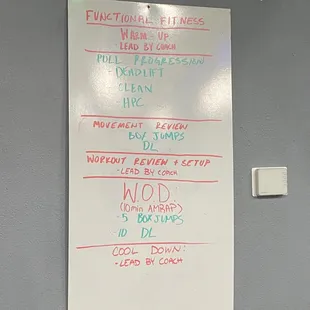 FUNCTIONAL FITNESS
WARM UP
- LEAD BY COACH
PULL PROGRESSION
- DEADLIFT
- CLEAN
- HPC
MOVEMENT REVIEW
BOX JUMPS
DL
WORKOUT REVIEW + SETUP
- LEAD BY COACH
W.O.D.
(10min AMRAP)
- 5 BOX JUMPS
- 10 DL
COOL DOWN:
- LEAD BY COACH